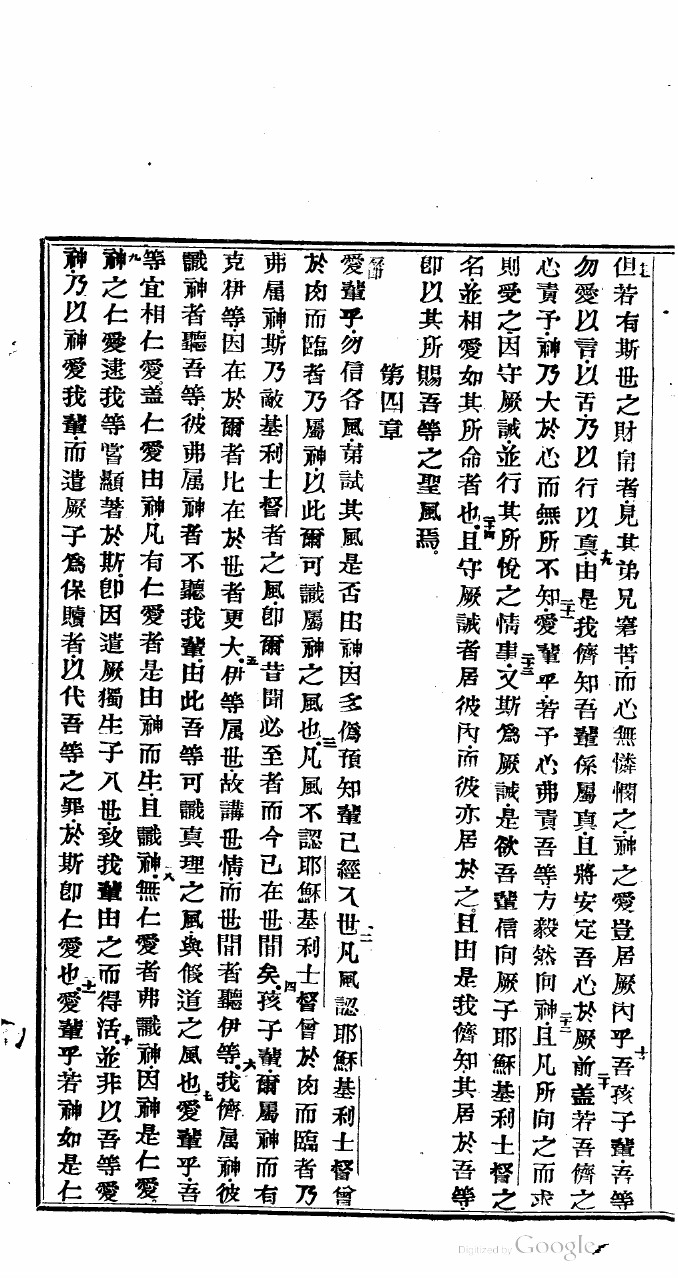 但若有斯世之財帛者見其弟兄窘苦而心無憐憫之神之愛豈居厥內乎吾孩子輩吾等
勿愛以言以舌乃以行以真由是我儕知吾輩係屬真且將安定吾心於厥前蓋若吾儕之
心責予神乃大於心而無所不知愛輩乎若予心弗責吾等方毅然向神且凡所向之而求
則受之因守厥誡並行其所悅之情事又斯爲厥誡是欲吾輩信向厥子耶穌基利士督之
名並相愛如其所命者也且守厥誡者居彼內而彼亦居於之且由是我儕知其居於吾等
卽以其所賜吾等之聖風焉。
第四章
愛輩乎勿信各風第試其風是否由神因多僞預知輩已經入世凡風認耶穌基利士督曾
於肉而臨者乃屬神以此爾可識屬神之風也凡風不認耶穌基利士督曾於肉而臨者乃
弗屬神斯乃敵基利士督者之風卽爾昔聞必至者而今已在世間矣孩子輩爾屬神而有
克伊等因在於爾者比在於世者更大伊等属世故講世情而世間者聽伊等我儕属神彼
識神者聽吾等彼弗属神者不聽我輩由此吾等可識真理之風與假道之風也愛輩乎吾
等宜相仁愛蓋仁愛由神凡有仁愛者是由神而生且識神無仁愛者弗識神因神是仁愛
神之仁愛逮我等嘗顯著於斯卽因遣厥獨生子入世致我輩由之而得活並非以吾等愛
神乃以神愛我輩而遣厥子爲保贖者以代吾等之罪於斯卽仁愛也愛輩乎若神如是仁
Digitized by Google